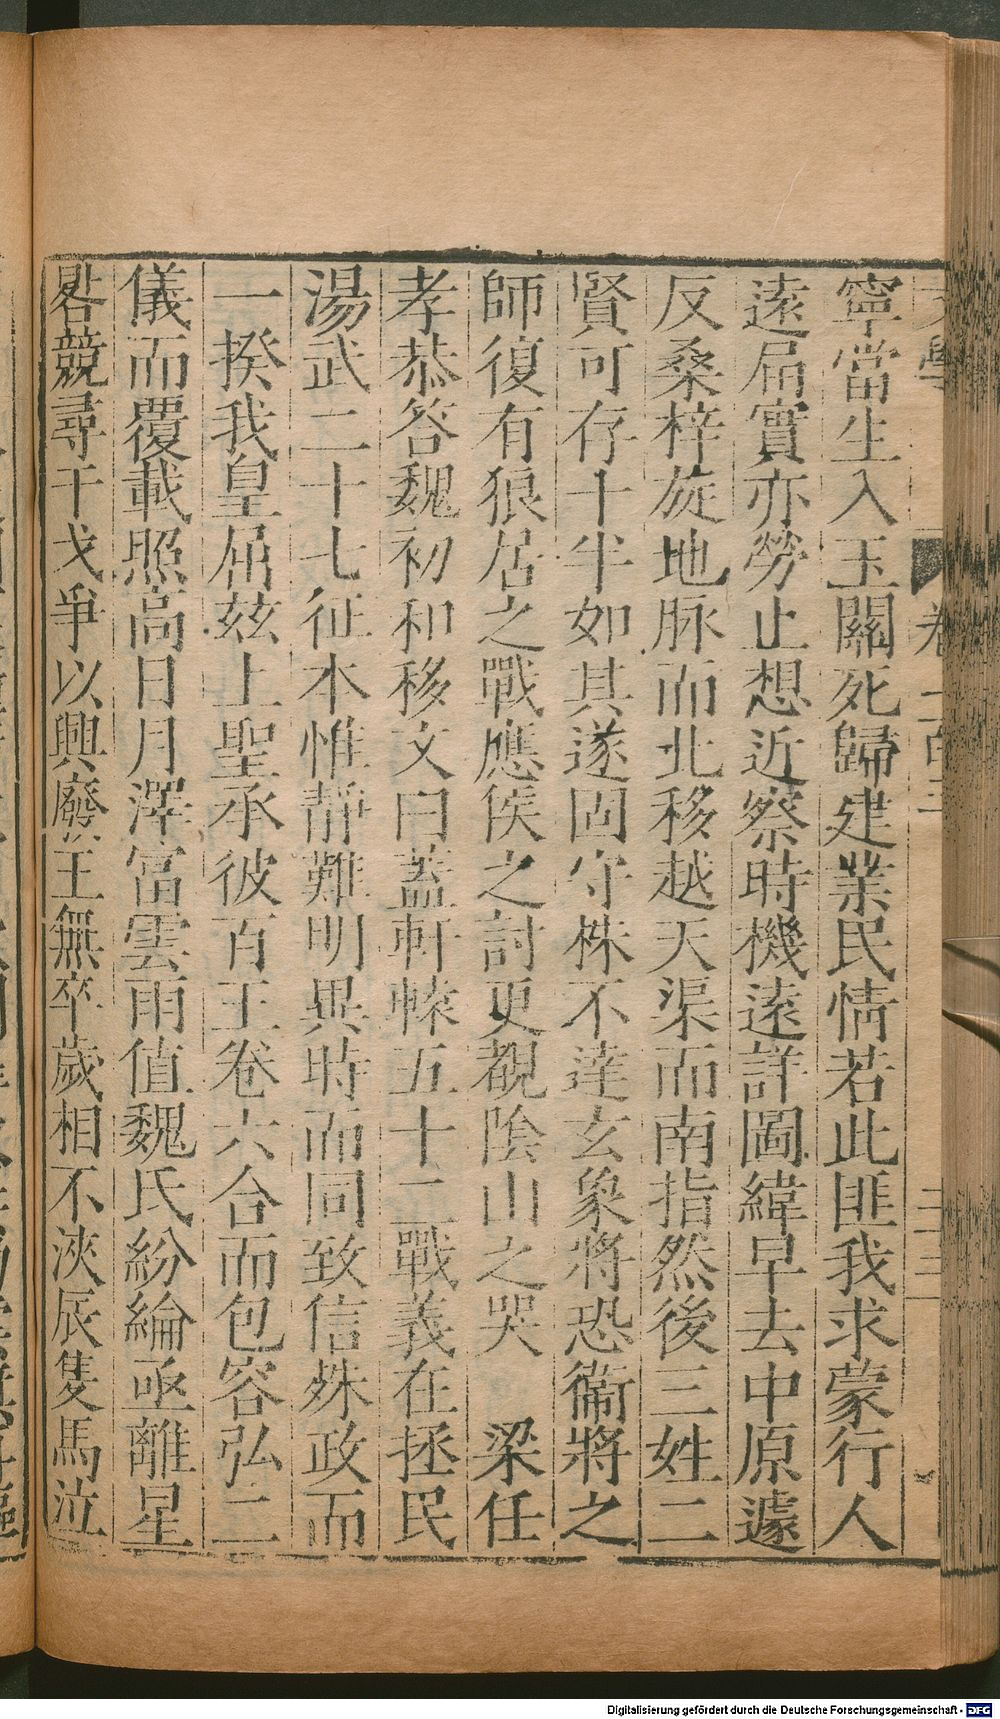 寧當生入玉關死歸建業民情若此匪我求蒙行人
遠届實亦勞止想近察時機遠詳圖緯早去中原遽
反桑梓旋地脉而北移越天渠而南指然後三姓二
賢可存十半如其遂固守株不達玄象將恐衞將之
師復有狼居之戰應侯之討更覩陰山之哭 梁任
孝恭答魏初和移文曰蓋軒轅五十二戰義在拯民
湯武二十七征本惟靜難明異時而同致信殊政而
一揆我皇届兹上聖承彼百王卷六合而包容弘二
儀而覆載照高日月澤富雲雨值魏氏紛綸亟離星
晷競尋干戈爭以興廢 王無卒歲相不浹辰隻馬泣
Digitalisierung gefördert durch die Deutsche Forschungsgemeinschaft - DFG